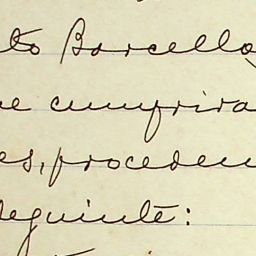 to Barcellos
e cumprira
es, proceden
seguinte: